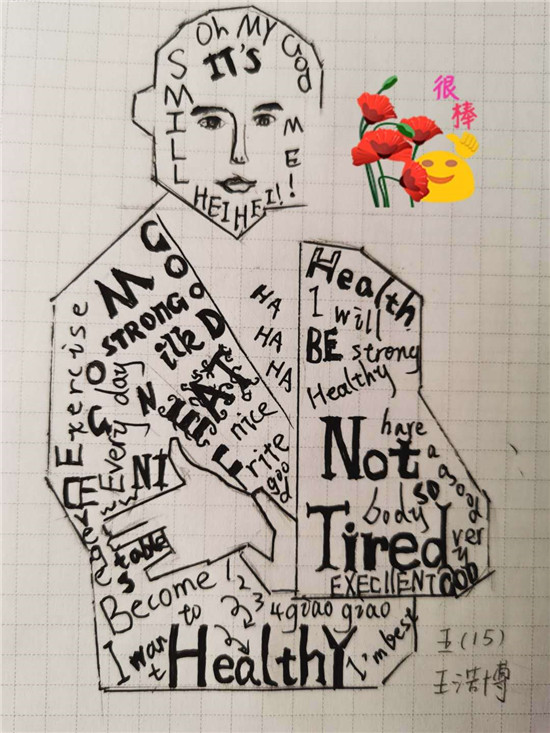 Oh MY God
IT'S
ME!
SMILL
HEI HEI!!
很棒
GOOD
M
STRONG
ilk
Exercise
Every day
MEAT
nice
rite
good
NI
HA
HA
HA
Health
I will
BE strong
Healthy
Not
have
a
good
body
so
Tired
very
EXECllENT
tables
Become
1 2 3 4 giao giao
to
I want
HealthY
I'm best
王(15)
王浩博